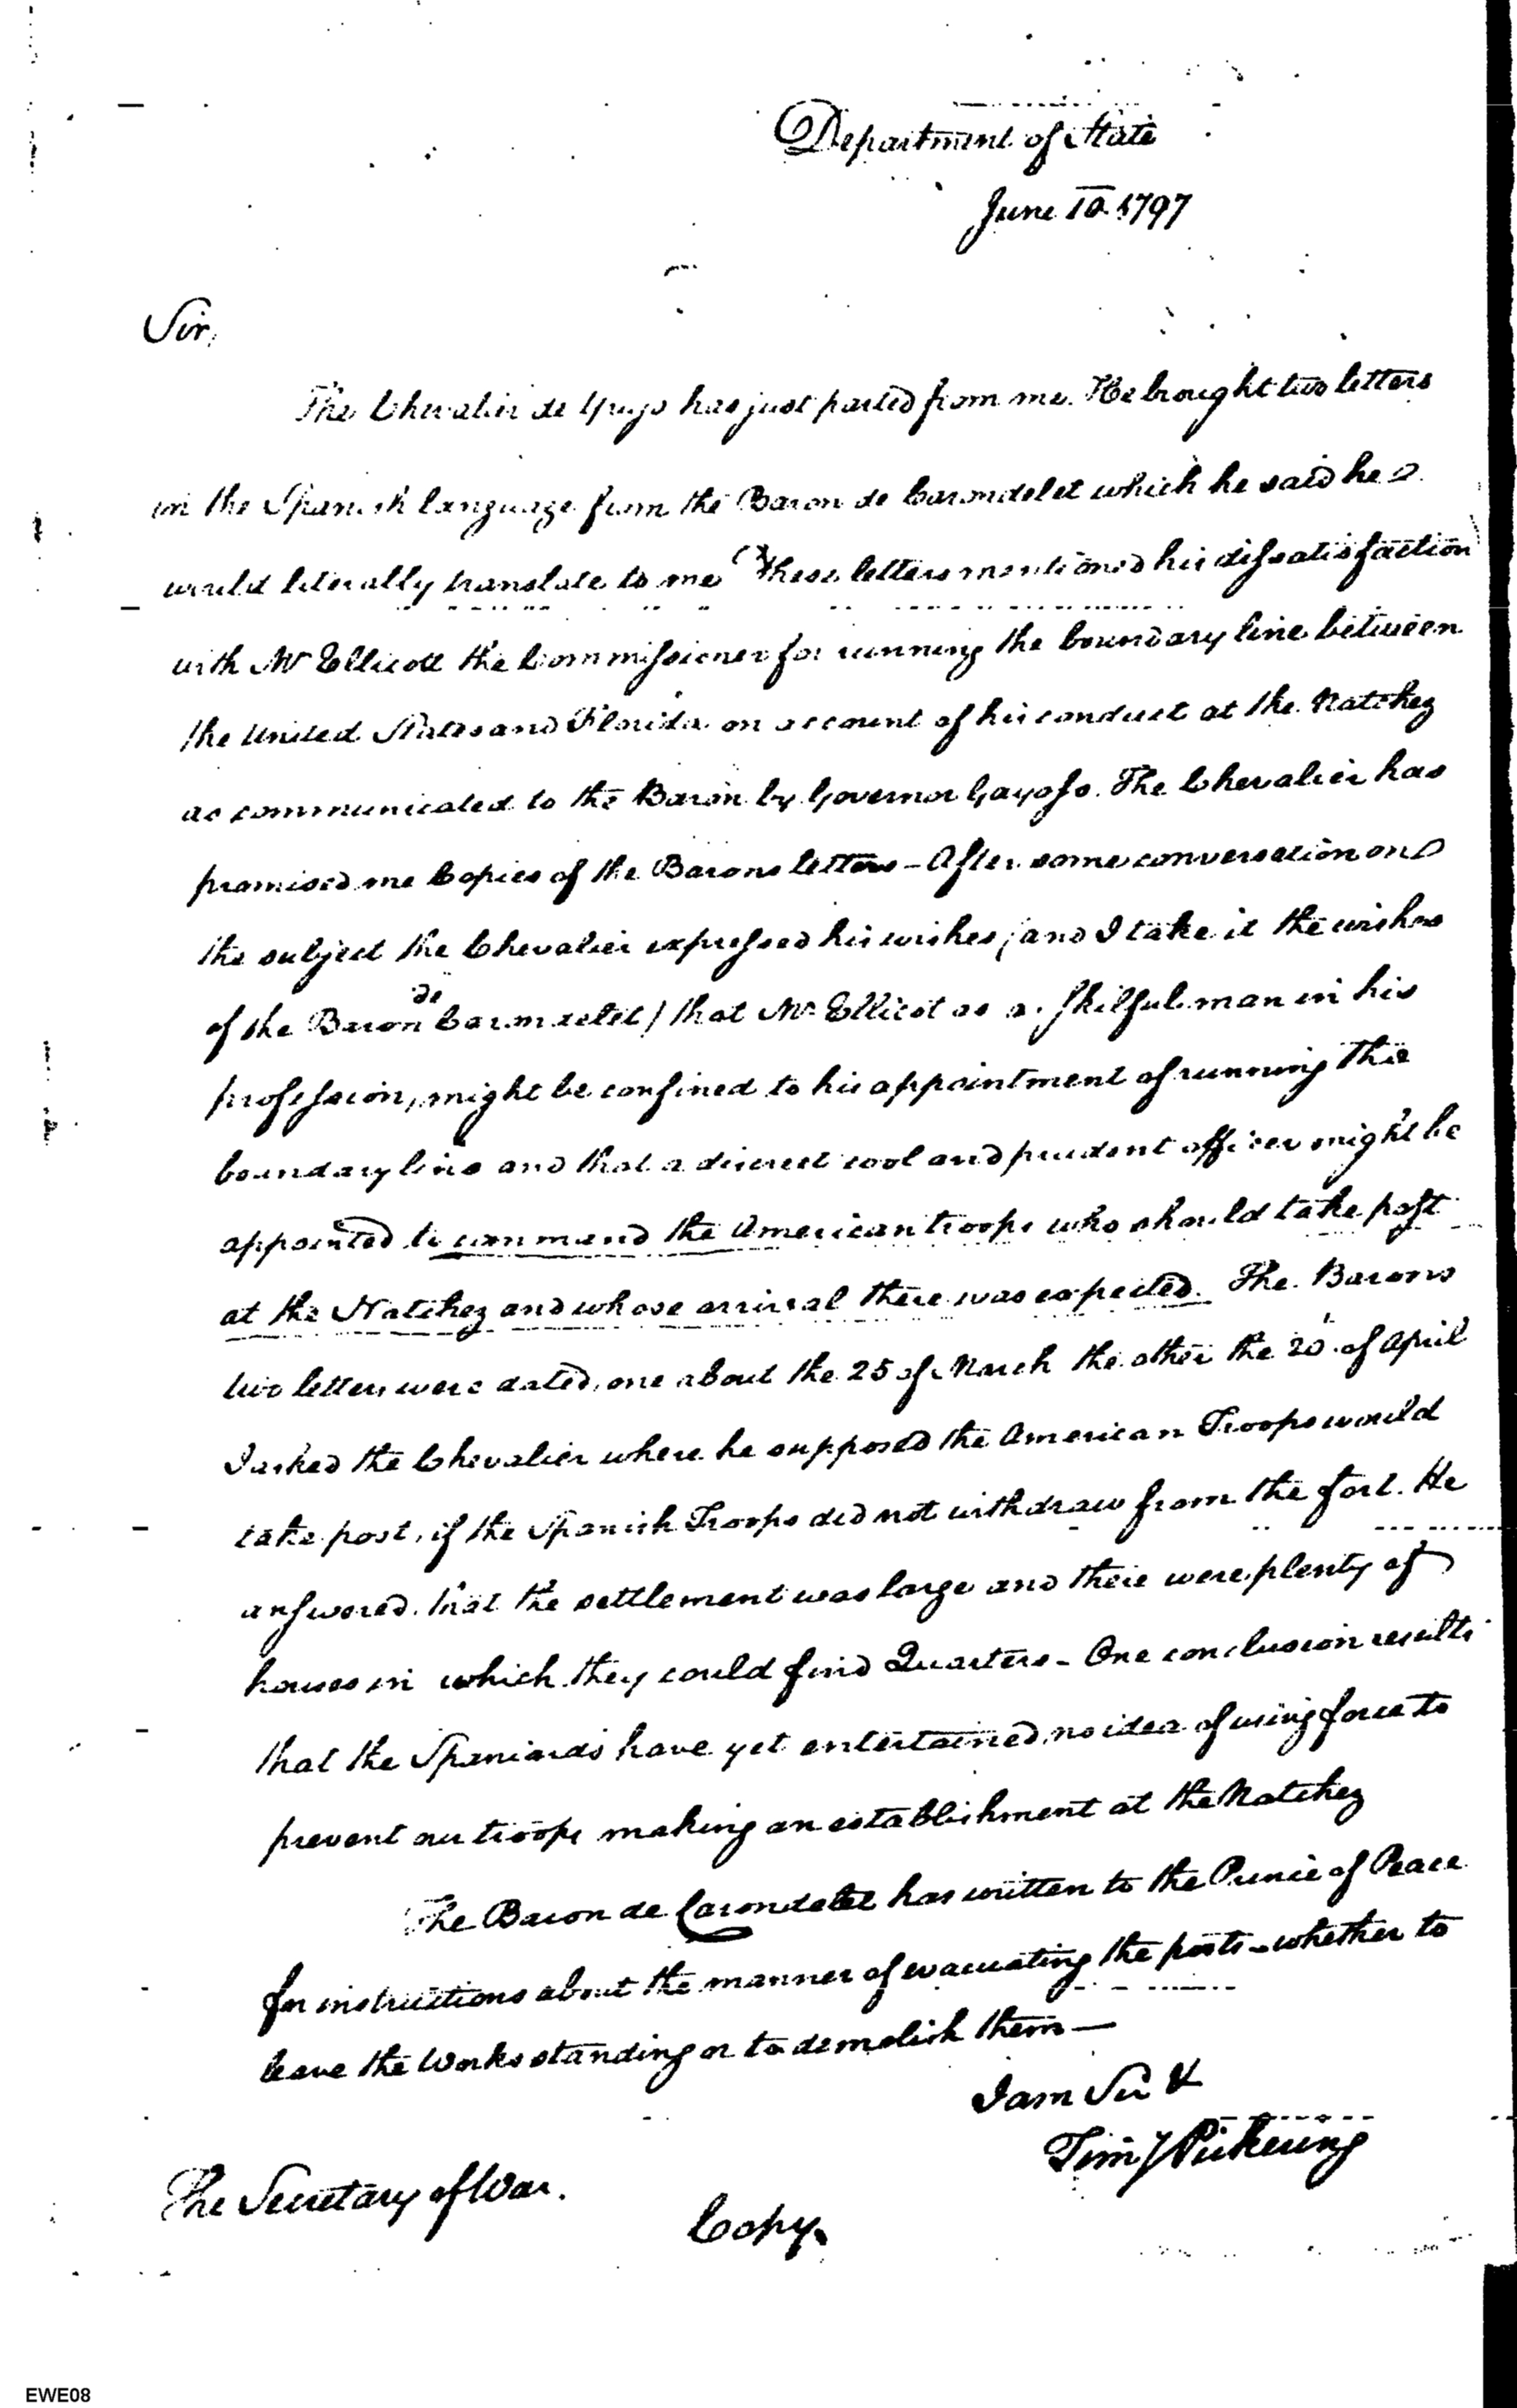 Department of State
June 10 1797
Sir,
The Chevalier de Yrujo has just parted from me. He brought two letters
in the Spanish language from the Baron de Carondelet which he said he
would literally translate to me These letters mentioned his dissatisfaction
with Mr Ellicott the Commissioner for running the boundary line between
the United States and Florida on account of his conduct at the Natchez
as communicated to the Baron by Governor Gayoso. The Chevalier has
promised me Copies of the Barons letters – After some conversation on
the subject the Chevalier expressed his wishes, (and I take it the wishes
of the Baron de Carondelet) that Mr Ellicot as a skilful man in his
profession, might be confined to his appointment of running the
boundary line and that a discreet cool and prudent officer might be
appointed to command the American troops who should take post
at the Natchez and whose arrival there was expected. The Barons
two letters were dated, one about the 25 of March the other the 20 of April
I asked the Chevalier where he supposed the American Troops would
take post, if the Spanish Troops did not withdraw from the fort. He
answered that the settlement was large and there were plenty of
houses in which they could find Quarters – One conclusion results
that the Spaniards have yet entertained no idea of using force to
prevent our troops making an establishment at the Natchez
The Baron de Carondelet has written to the Prince of Peace
for instructions about the manner of evacuating the posts – whether to
leave the Works standing or to demolish them —
I am Sir &
Tim Pickering
The Secretary of War.
Copy.
EWE08